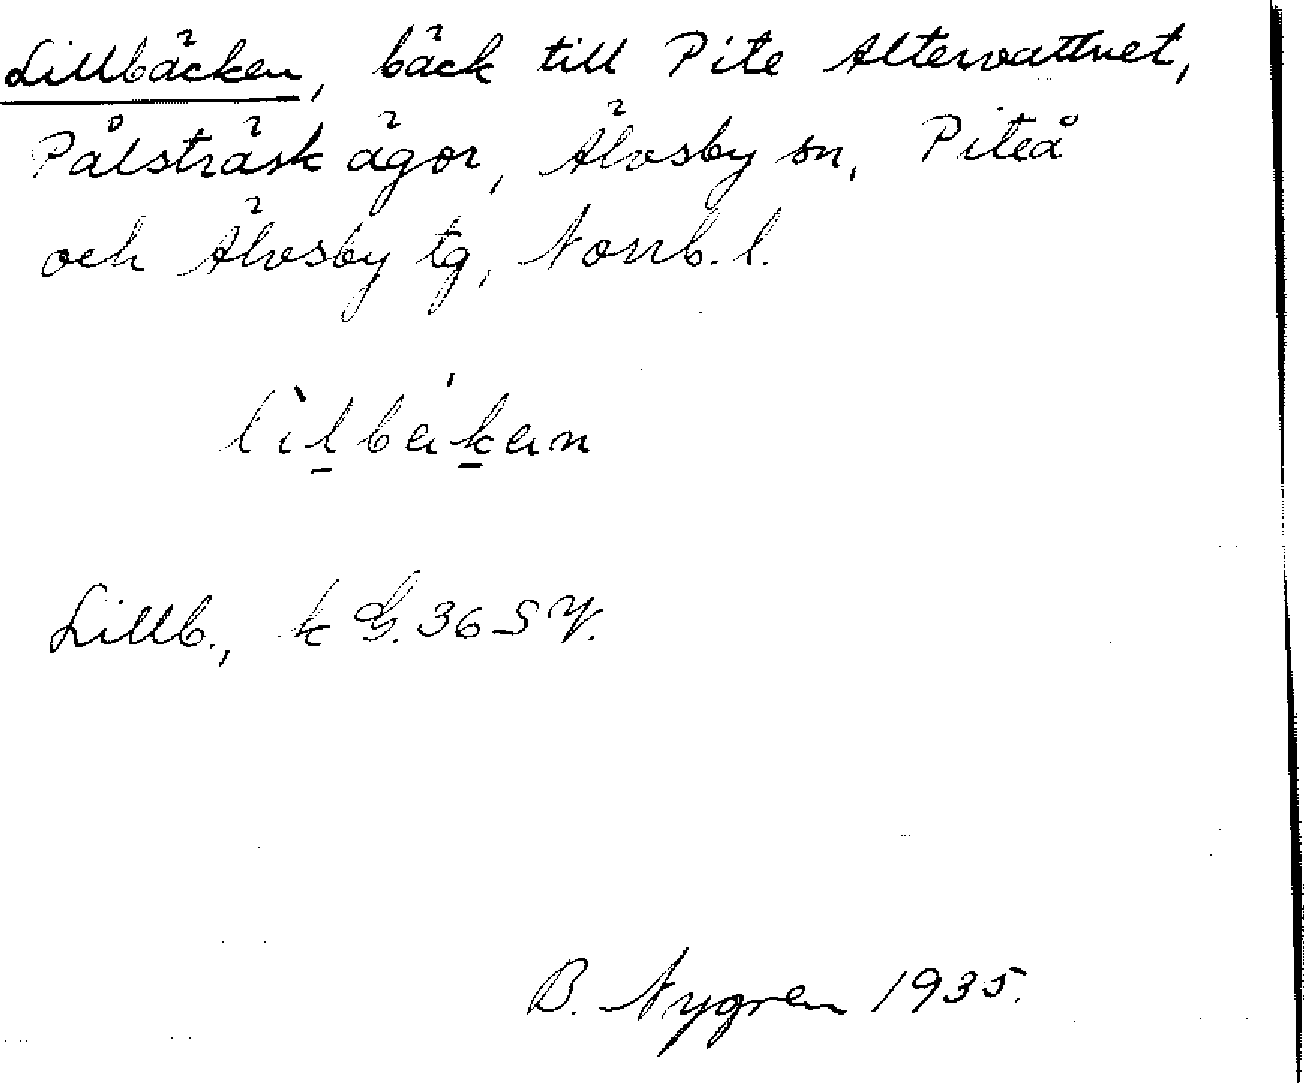 Lillbäcken, bäck till Pite Altervattnet,
Pålsträsk ägor, Älvsby sn, Piteå
och Älvsby tg, Norrb. l.
Lillb., k G. 36 SV.
B. Nygren 1935.